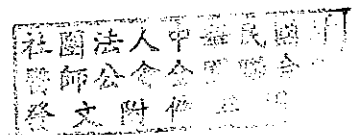 社團法人中華民國
醫師公會全國聯合會
發文附件